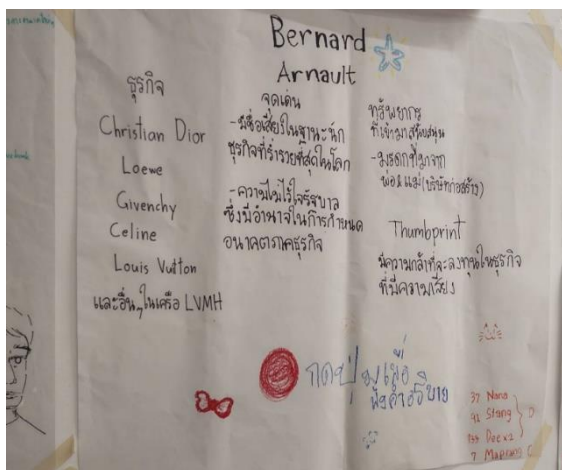 Bernard
Arnault
ธุรกิจ
Christian Dior
Loewe
Givenchy
Celine
Louis Vuitton
และอื่นๆในเครือ LVMH
จุดเด่น
-มีชื่อเสียงในฐานะนัก
ธุรกิจที่ร่ำรวยที่สุดในโลก
-ความไม่ไว้ใจรัฐบาล
ซึ่งมีอำนาจในการกำหนด
อนาคตภาคธุรกิจ
ทรัพยากร
ที่เข้ามาสนับสนุน
-มรดกที่มาจาก
พ่อ&แม่(บริษัทก่อสร้าง)
Thumbprint
มีความกล้าที่จะลงทุนในธุรกิจ
ที่มีความเสี่ยง
กดปุ่มเพื่อ
ฟังคำอธิบาย
37 Nana
Stang
7